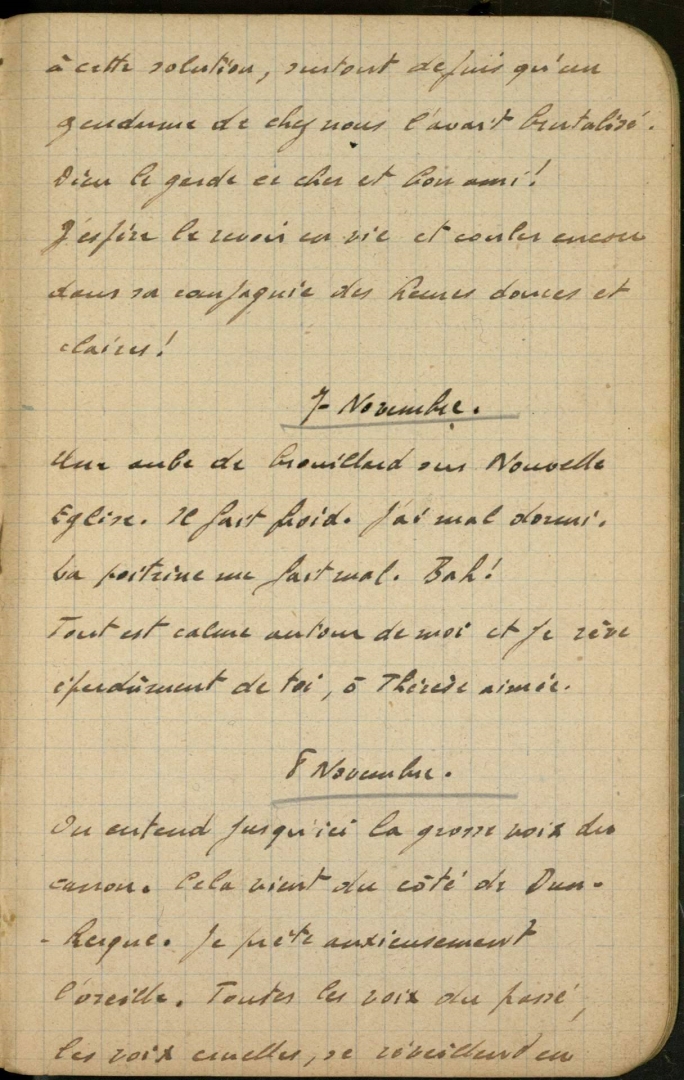 à cette solution, surtout depuis qu'un
gendarme de chez nous l'avait brutalisé.
Dieu le garde ce cher et bon ami!
J'espère le revoir en vie et couler encore
dans sa compagnie des heures douces et
claires!
7 Novembre.
Une aube de brouillard sur Nouvelle
Eglise. Il fait froid. J'ai mal dormi.
La poitrine me fait mal. Bah!
Tout est calme autour de moi et je rêve
éperdûment de toi, ô Thérèse aimée.
8 Novembre.
On entend jusqu'ici la grosse voix du
canon. Cela vient du côté de Dun-
-kerque. Je prête anxieusement
l'oreille. Toutes les voix du passé,
les voix cruelles, se réveillent en